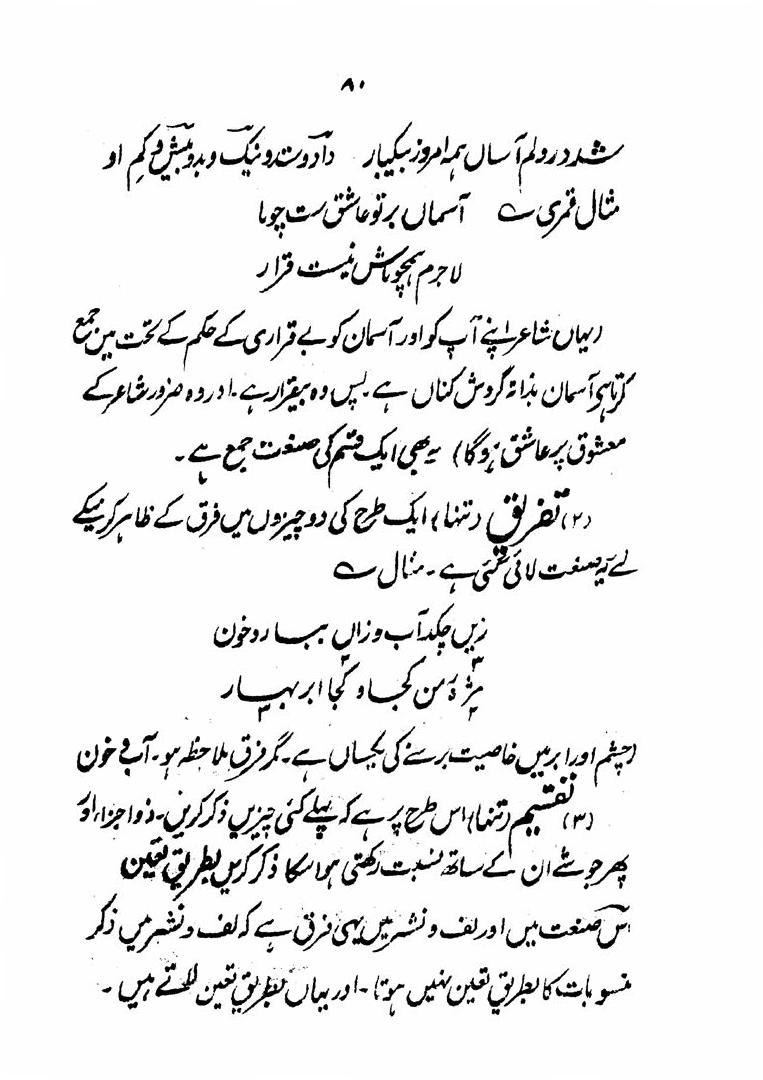 ۸۰
شد در دلم آساں ہمہ امروز بیکبار دادوستد و نیک و بد و بیش و کم او
مثال قمری ؎ آسماں بر تو عاشق ست چوما
لاجرم ہمچو ماش نیست قرار
(یہاں شاعر اپنے آپ کو اور آسمان کو بے قراری کے حکم کے تحت میں جمع
کرتا ہی آسمان بذاتہ گردش کناں ہے۔ پس وہ بیقرار ہے۔ اور وہ ضرور شاعر کے
معشوق پر عاشق ہوگا) یہ بھی ایک قسم کی صنعت جمع ہے۔
(۲) تفریق (تنہا) ایک طرح کی دو چیزوں میں فرق کے ظاہر کرنیکے
لئے یہ صنعت لائی گئی ہے۔ مثال ؎
زیں چکد آب وزاں ببارد خون
مژۂ من کجا و کجا ابر بہار
(چشم اور ابر میں خاصیت برسنے کی یکساں ہے۔ مگر فرق ملاحظہ ہو۔ آب و خون
(۳) تقسیم (تنہا) اس طرح پر ہے کہ پہلے کئی چیزیں ذکر کریں۔ ذو اجزاء اور
پھر جو شئے ان کے ساتھ نسبت رکھتی ہو اسکا ذکر کریں بطریق تعین
اس صنعت میں اور لف و نشر میں یہی فرق ہے کہ لف و نشر میں ذکر
منسوبات کا بطریق تعین نہیں ہوتا۔ اور یہاں بطریق تعین لاتے ہیں۔